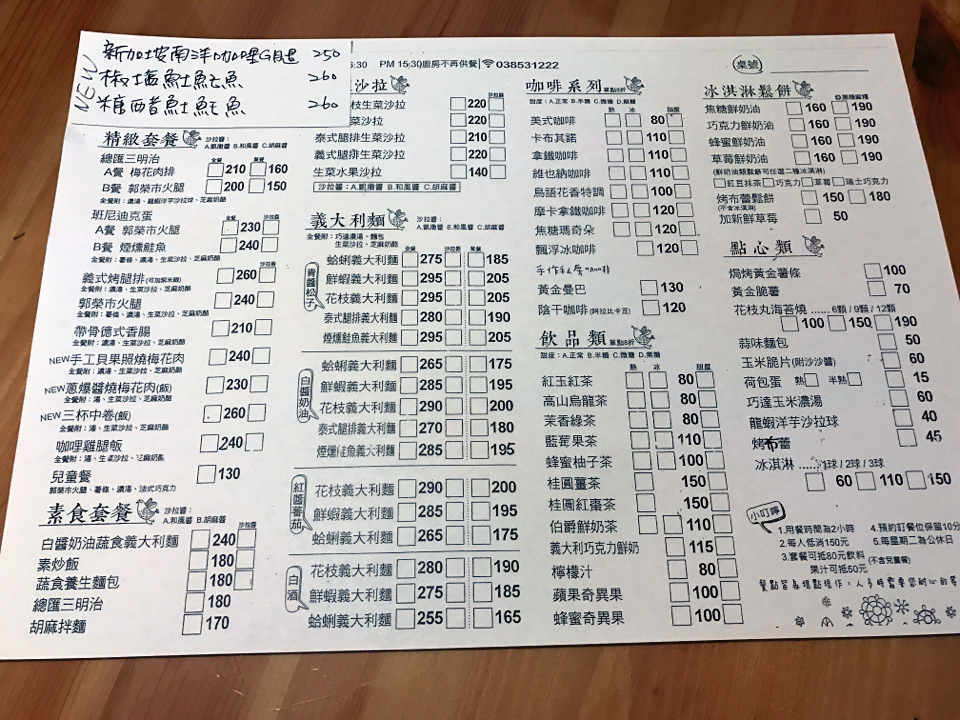 NEW
新加坡南洋咖哩G月退 250
椒塩魠魠魚 260
5:30 PM 15:30廚房不再供餐 038531222
桌號
精緻套餐
沙拉醬:
A.凱撒醬 B.和風醬 C.胡麻醬
全餐 單餐
總匯三明治
A餐 梅花肉排 210 160
B餐 郭榮市火腿 200 150
全餐附:濃湯、龍蝦洋芋沙拉球、芝麻奶酪
全餐 沙拉醬
班尼迪克蛋
A餐 郭榮市火腿 230
B餐 煙燻鮭魚 240
全餐附:濃湯、生菜沙拉、芝麻奶酪
義式烤腿排(可加紫米飯) 260
全餐附:濃湯、生菜沙拉、芝麻奶酪
郭榮市火腿 240
全餐附:濃湯、生菜沙拉、芝麻奶酪
帶骨德式香腸 210
全餐附:濃湯、生菜沙拉、芝麻奶酪
NEW手工貝果照燒梅花肉 240
全餐附:湯、生菜沙拉、芝麻奶酪
NEW蔥爆醬燒梅花肉(飯) 230
全餐附:湯、生菜沙拉、芝麻奶酪
NEW三杯中卷(飯) 260
全餐附:湯、生菜沙拉、芝麻奶酪
咖哩雞腿飯 240
全餐附:湯、生菜沙拉、芝麻奶酪
兒童餐 130
郭榮市火腿、薯條、濃湯、法式巧克力
素食套餐
沙拉醬:
A.和風醬 B.胡麻醬
沙拉醬
白醬奶油蔬食義大利麵 240
素炒飯 180
蔬食養生麵包 180
總匯三明治 180
胡麻拌麵 170
沙拉
沙拉醬
枝生菜沙拉 220
菜沙拉 220
泰式腿排生菜沙拉 210
義式腿排生菜沙拉 220
生菜水果沙拉 140
沙拉醬:A.凱撒醬 B.和風醬 C.胡麻醬
義大利麵
沙拉醬:
A.凱撒醬 B.和風醬 C.胡麻醬
全餐附:巧達濃湯、麵包
生菜沙拉、芝麻奶酪
全餐 沙拉醬 單餐
青醬松子
蛤蜊義大利麵 275 185
鮮蝦義大利麵 295 205
花枝義大利麵 295 205
泰式腿排義大利麵 280 190
煙燻鮭魚義大利麵 295 205
白醬奶油
蛤蜊義大利麵 265 175
鮮蝦義大利麵 285 195
花枝義大利麵 290 200
泰式腿排義大利麵 270 180
煙燻鮭魚義大利麵 285 195
紅醬蕃茄
花枝義大利麵 290 200
鮮蝦義大利麵 285 195
蛤蜊義大利麵 265 175
白酒
花枝義大利麵 280 190
鮮蝦義大利麵 275 185
蛤蜊義大利麵 255 165
咖啡系列 單點8折
甜度:A.正常 B.半糖 C.微糖 D.無糖
熱 冰 甜度
美式咖啡 80
卡布其諾 110
拿鐵咖啡 110
維也納咖啡 110
鳥語花香特調 100
摩卡拿鐵咖啡 120
焦糖瑪奇朵 120
飄浮冰咖啡 120
黃金曼巴 130
陰干咖啡(阿拉比卡豆) 160
飲品類 單點8折
甜度:A.正常 B.半糖 C.微糖 D.無糖
熱 冰 甜度
紅玉紅茶 80
高山烏龍茶 80
茉香綠茶 80
藍莓果茶 110
蜂蜜柚子茶 100
桂圓薑茶 150
桂圓紅棗茶 150
伯爵鮮奶茶 110
義大利巧克力鮮奶 115
檸檬汁 80
蘋果奇異果 100
蜂蜜奇異果 100
冰淇淋鬆餅
焦糖鮮奶油 160 190
巧克力鮮奶油 160 190
蜂蜜鮮奶油 160 190
草莓鮮奶油 160 190
(鮮奶油類鬆餅可任選二種冰淇淋)
紅豆抹茶 巧克力 草莓 瑞士巧克力
烤布蕾鬆餅 150 180
(不含冰淇淋)
加新鮮草莓 50
點心類
焗烤黃金薯條 100
黃金脆薯 70
花枝丸海苔燒......6顆/9顆/12顆
100 150 190
蒜味麵包 50
玉米脆片(附沙沙醬) 60
荷包蛋 熱 半熟 15
巧達玉米濃湯 60
龍蝦洋芋沙拉球 40
烤布蕾 45
冰淇淋......1球/2球/3球
60 110 150
小叮嚀
1.用餐時間為2小時
2.每人低消150元
3.套餐可抵80元飲料
果汁可抵50元
(不含兒童餐)
4.預約訂餐位保留10分
5.每星期二為公休日